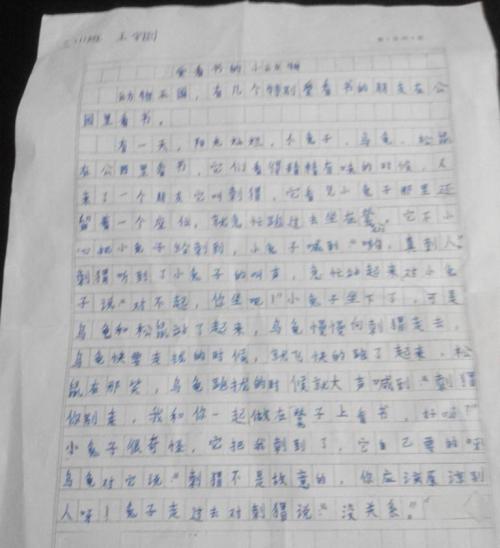 爱看书的小动物
动物王国，有几个特别爱看书的朋友在公
园里看书。
有一天，阳光灿烂，小兔子，乌龟，松鼠
在公园里看书，它们看得精精有味的时候，又
来了一个朋友它叫刺猬，它看见小兔子那里还
留着一个座位，就急忙跑过去坐在凳，它不小
心把小兔子给刺到，小兔子喊到“呀，真到人。
刺猬听到了小兔子的叫声，急忙站起来对小兔
子说“对不起，你坐吧！”小兔子坐下了，可是
乌龟和松鼠站了起来，乌龟慢慢向刺猬走去，
乌龟快要走找的时候，就飞快的跑了起来，松
鼠在那笑，乌龟跑找的时候就大声喊到“刺猬
你别走，我和你一起做在凳子上看书，好吗？”
小兔子很奇怪，它把我刺到了，它自己要的呀
乌龟对它说“刺猬不是故意的，你应该原谅别
人呀！兔子走过去对刺猬说“没关系。”